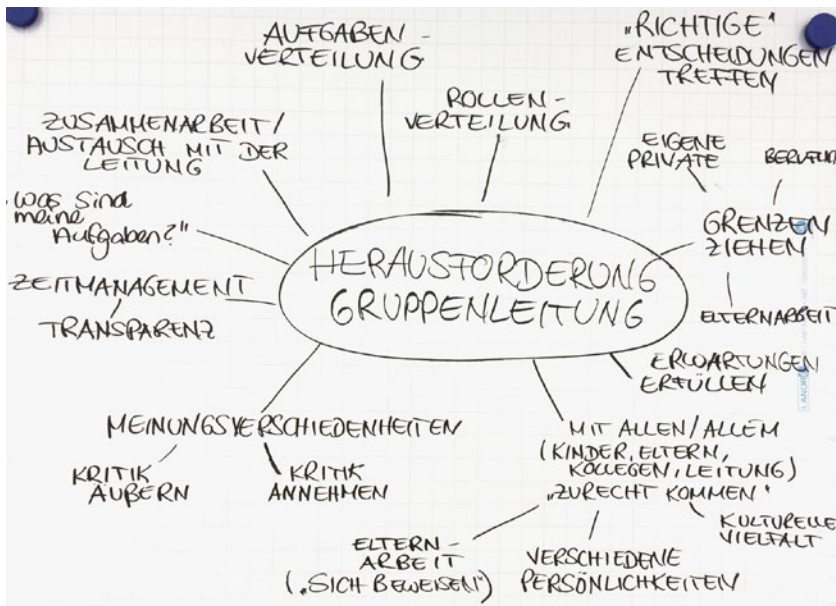 AUFGABEN-
VERTEILUNG
"RICHTIGE"
ENTSCHEIDUNGEN
TREFFEN
ROLLEN-
VERTEILUNG
ZUSAMMENARBEIT/
AUSTAUSCH MIT DER
LEITUNG
EIGENE
PRIVATE
"Was sind
meine
Aufgaben?"
GRENZEN
ZIEHEN
HERAUSFORDERUNG
GRUPPENLEITUNG
ZEITMANAGEMENT
TRANSPARENZ
ELTERNARBEIT
ERWARTUNGEN
ERFÜLLEN
MEINUNGSVERSCHIEDENHEITEN
KRITIK
ÄUßERN
KRITIK
ANNEHMEN
MIT ALLEN/ALLEM
(KINDER, ELTERN,
KOLLEGEN, LEITUNG)
"ZURECHT KOMMEN"
KULTURELLE
VIELFALT
ELTERN-
ARBEIT
("SICH BEWEISEN")
VERSCHIEDENE
PERSÖNLICHKEITEN